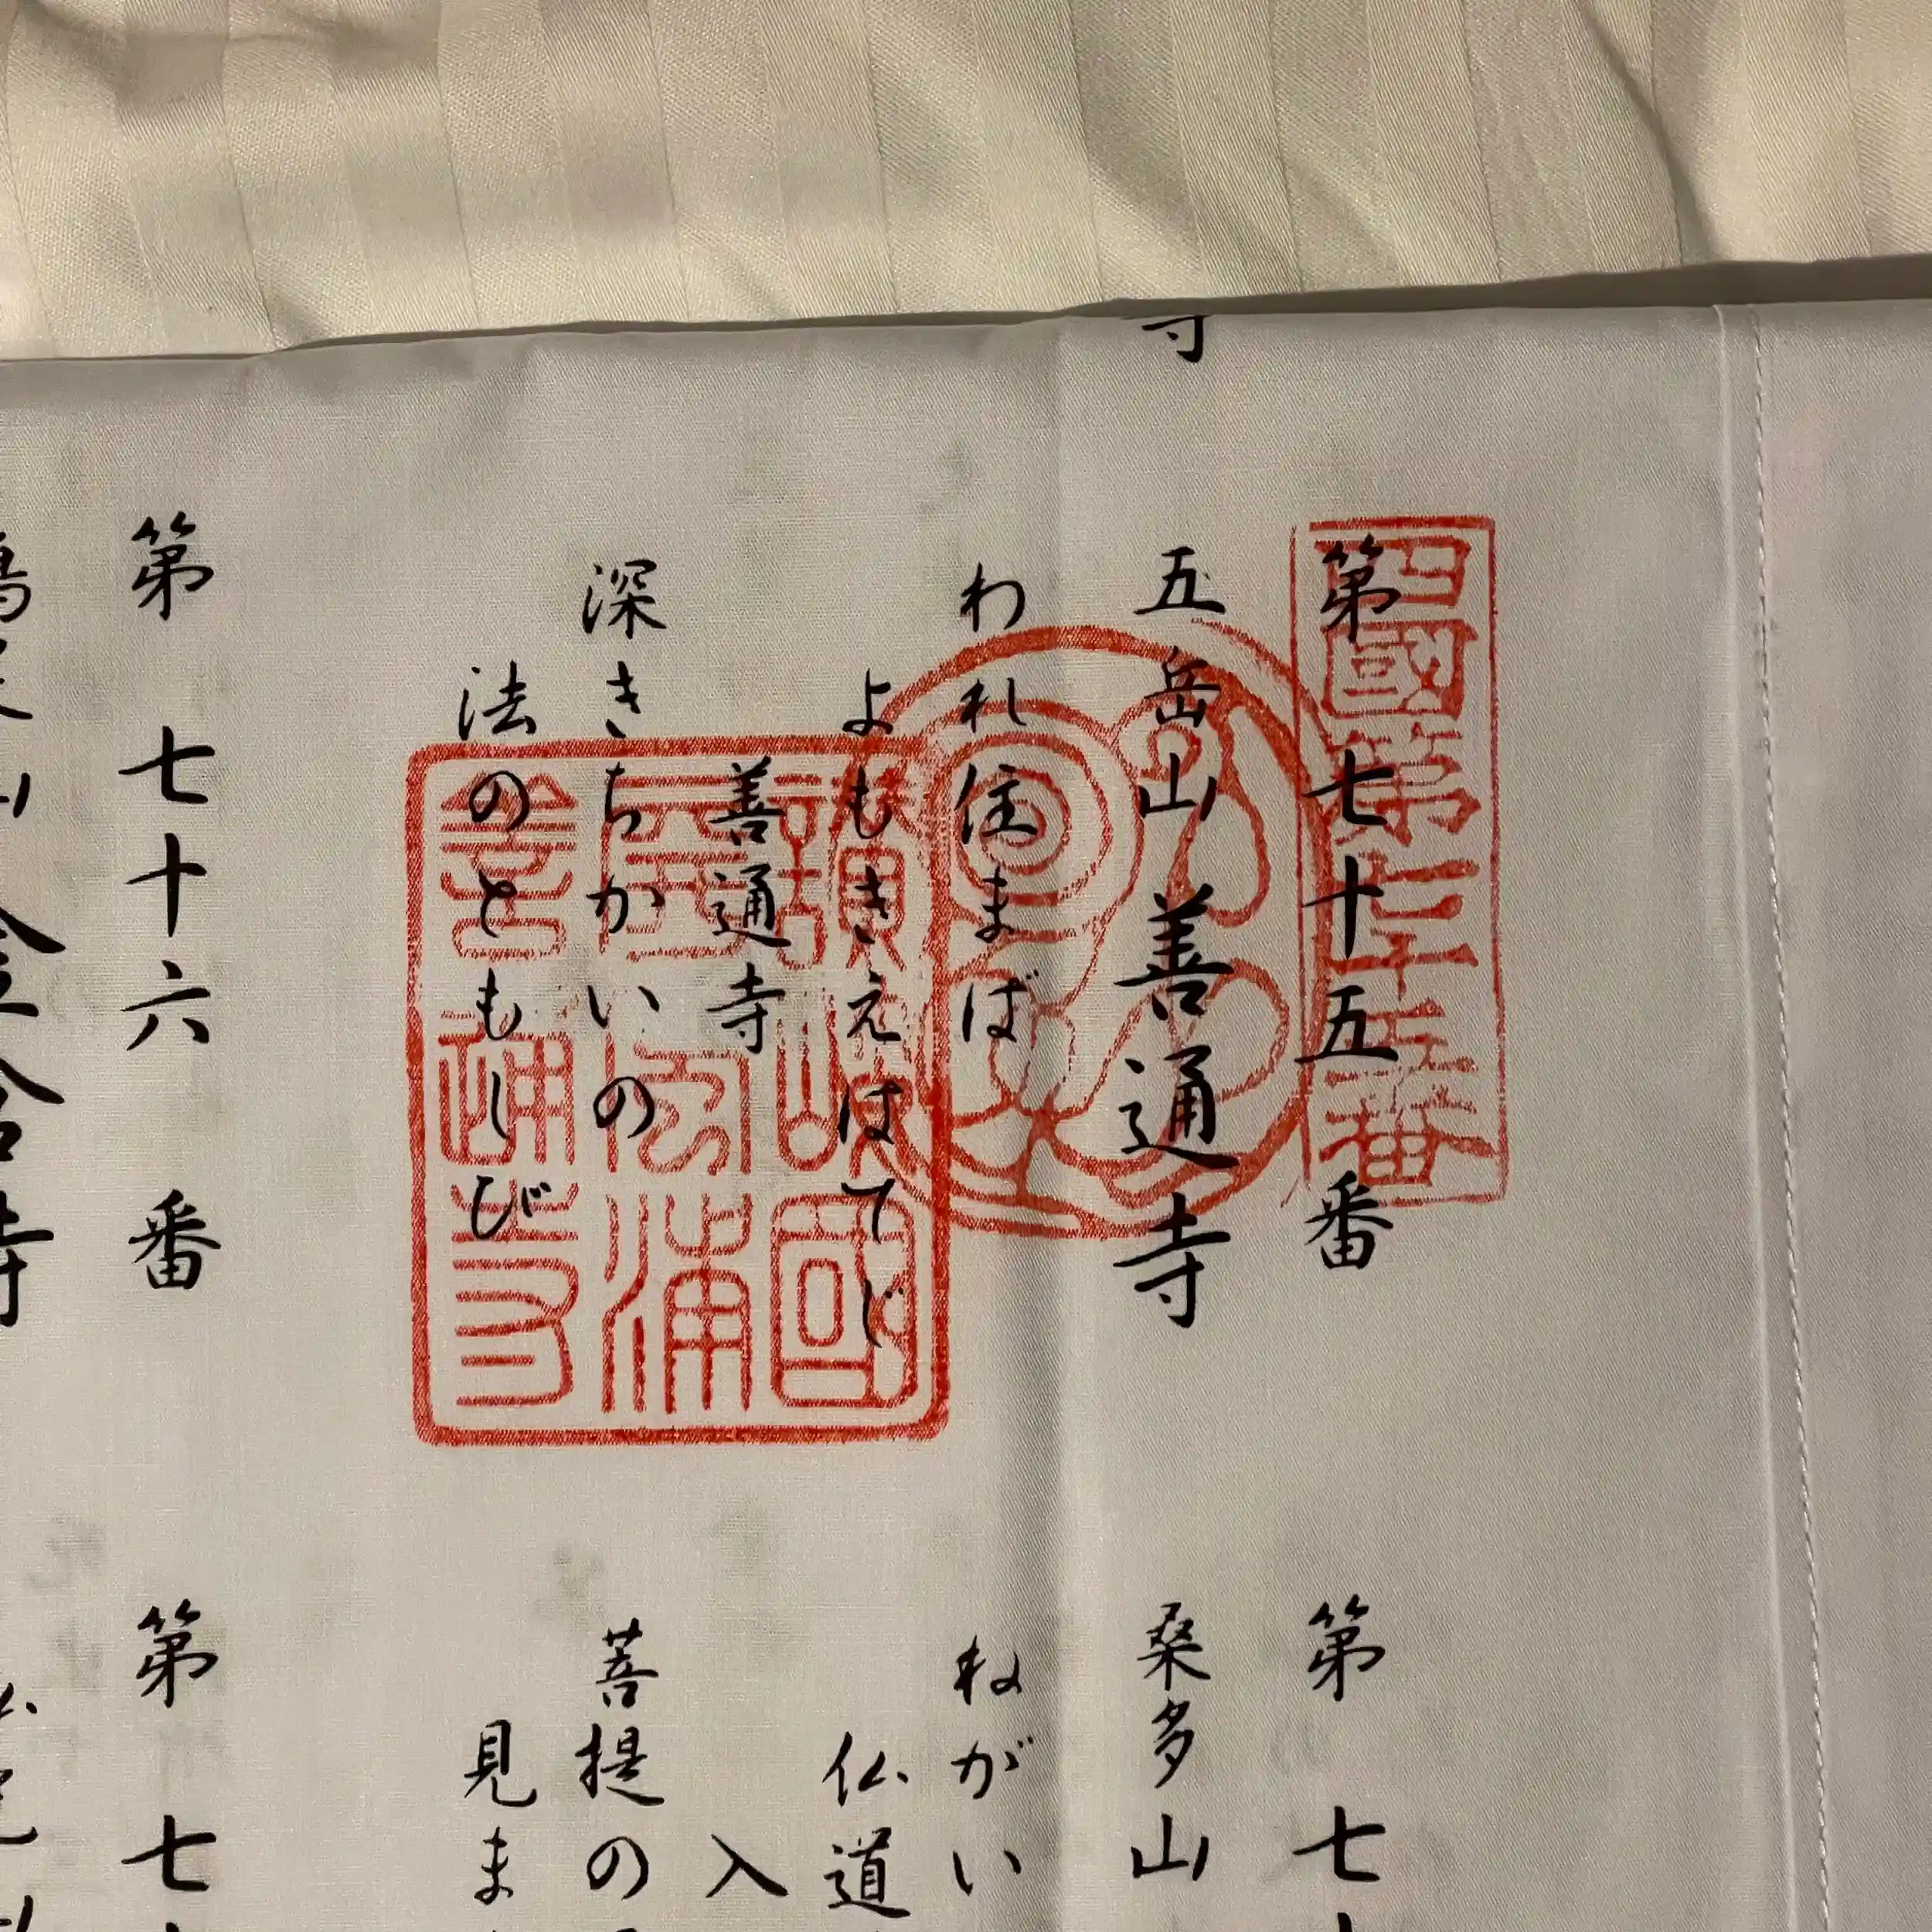 寺
第七十五番
五岳山 善通寺
われ住まば
よもきえはてじ
善通寺
深きちかいの
法のともしび
四國第七十五番
讃岐國
善通寺
第七十六番
金倉寺
第七
桑多山
ねがい
仏道
入
菩提の
見ま
第七